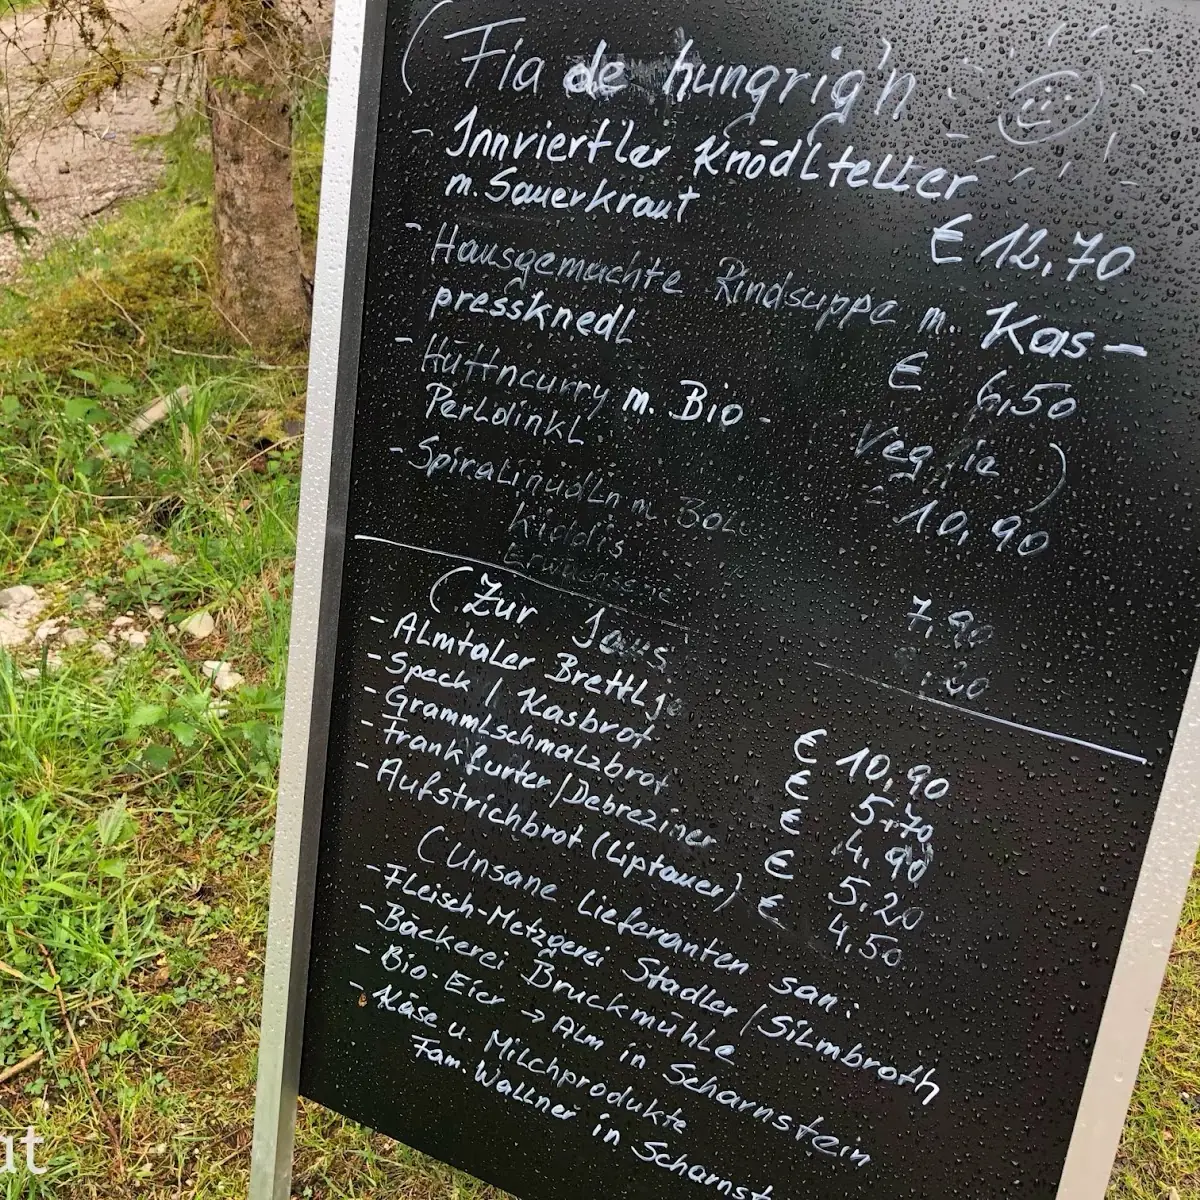 ( Fia de hungrig'n
- Innviertler Knödlteller
m. Sauerkraut
€ 12,70
- Hausgemachte Rindsuppe m. Kas-
pressknedl
€ 6,50
- Hüttncurry m. Bio-
Perldinkl
Veggie )
10,90
- Spiralinudln m. Bol
Kiddis
7,90
Erwachsene
( Zur Jaus
- Almtaler Brettlj
€ 10,90
- Speck / Kasbrot
€ 5,70
- Grammlschmalzbrot
€ 4,90
- Frankfurter / Debreziner
€ 5,20
- Aufstrichbrot (Liptauer)
€ 4,50
( Unsane Lieferanten san:
- Fleisch-Metzgerei Stadler / Silmbroth
- Bäckerei Bruckmühle
- Bio-Eier → Alm in Scharnstein
- Käse u. Milchprodukte
Fam. Wallner in Scharnst
at